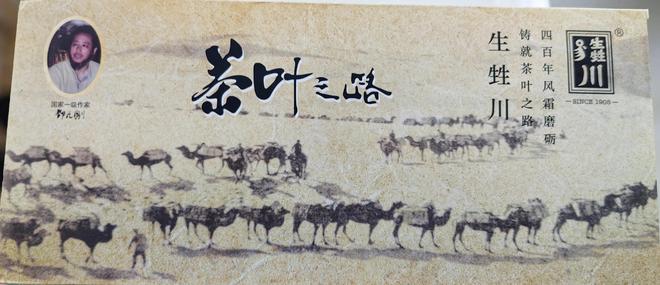 茶叶之路
国家一级作家
生甡川
四百年风霜磨砺
铸就茶叶之路
生甡川
®
SINCE 1908